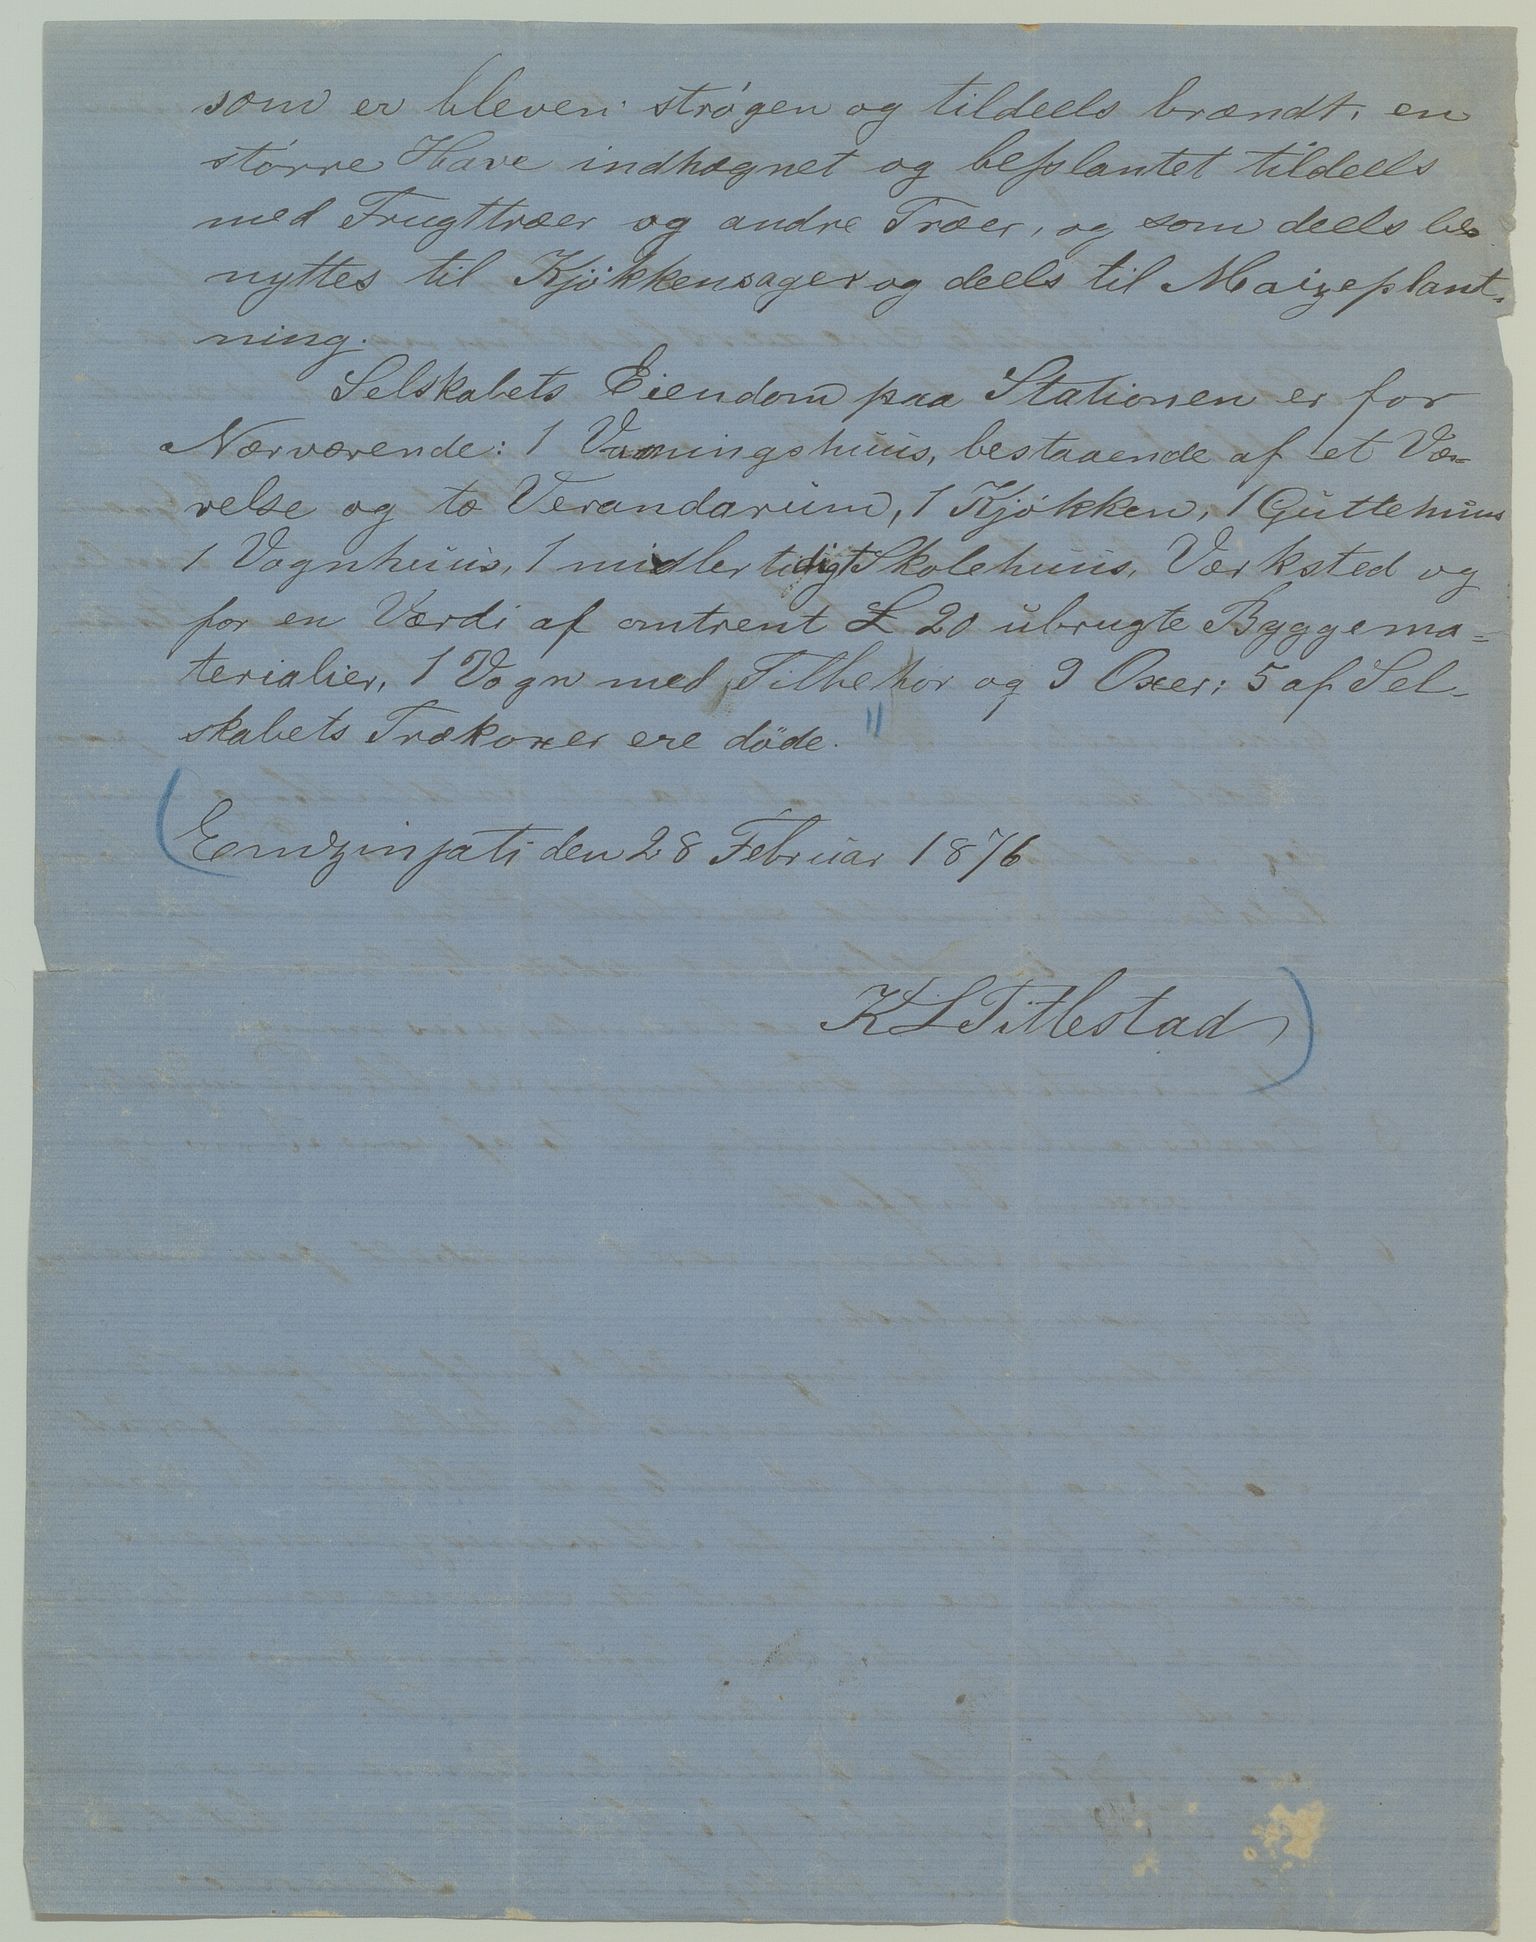 som er bleven strøgen og tildeels brændt, en
større Have indhægnet og beplantet tildeels
med Frugttræer og andre Træer, og som deels be
nyttes til Kjøkkensager og deels til Maizeplant-
ning.
Selskabets Eiendom paa Stationen er for
Nærværende: 1 Vaaningshuus, bestaaende af et Væ=
relse og to Verandarum, 1 Kjøkken, 1 Guttehuus
1 Vognhuus, 1 midlertidigt Skolehuus, Værksted og
for en Værdi af omtrent £ 20 ubrugte Byggema=
terialier, 1 Vogn med Tilbehør og 9 Oxer; 5 af Sel-
skabets Trækoxer ere døde. "
(Emzinjati den 28 Februar 1876
K L Titlestad)